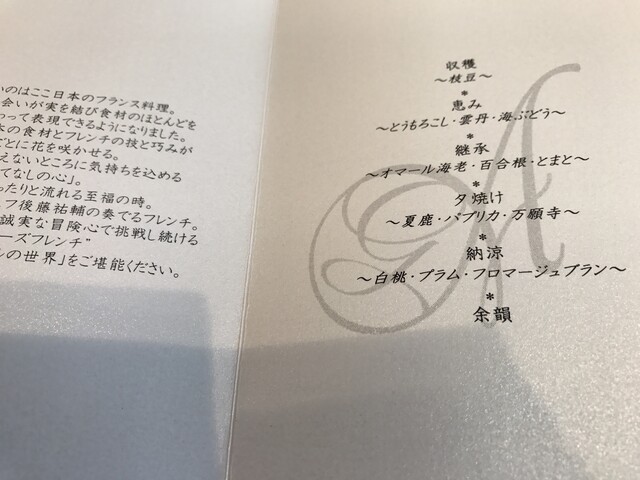 いのはここ日本のフランス料理。
会いが実を結び食材のほとんどを
わって表現できるようになりました。
の食材とフレンチの技と巧みが
ごとに花を咲かせる。
えないところに気持ちを込める
てなしの心」。
ったりと流れる至福の時。
フ後藤祐輔の奏でるフレンチ。
誠実な冒険心で挑戦し続ける
ーズフレンチ”
ルの世界」をご堪能ください。
収穫
～枝豆～
*
恵み
～とうもろこし・雲丹・海ぶどう～
*
継承
～オマール海老・百合根・とまと～
*
夕焼け
～夏鹿・パプリカ・万願寺～
*
納涼
～白桃・プラム・フロマージュブラン～
*
余韻